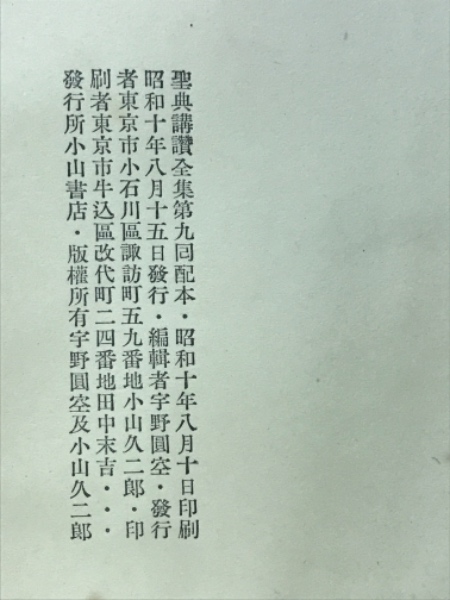 聖典講讚全集第九囘配本・昭和十年八月十日印刷
昭和十年八月十五日發行・編輯者宇野圓空・發行
者東京市小石川區諏訪町五九番地小山久二郎・印
刷者東京市牛込區改代町二四番地田中末吉・・・
發行所小山書店・版權所有宇野圓空及小山久二郎